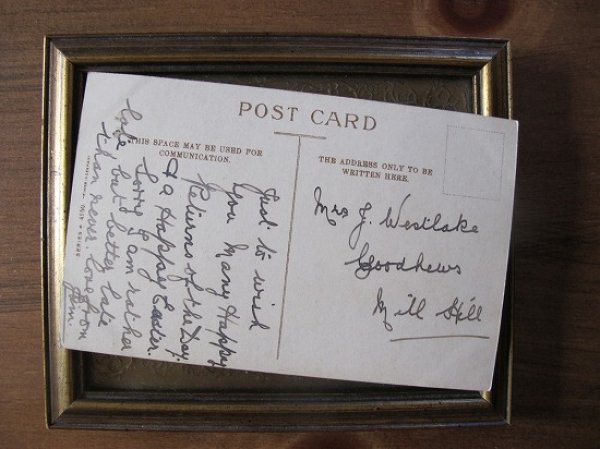 POST CARD
THIS SPACE MAY BE USED FOR
COMMUNICATION.
THE ADDRESS ONLY TO BE
WRITTEN HERE.
Just to wish
you Many Happy
Returns of the Day
& a Happy Easter.
Sorry I am rather
late but better late
than never. love from
Jim.
Mrs J. Westlake
Goodhews
Mill Hill